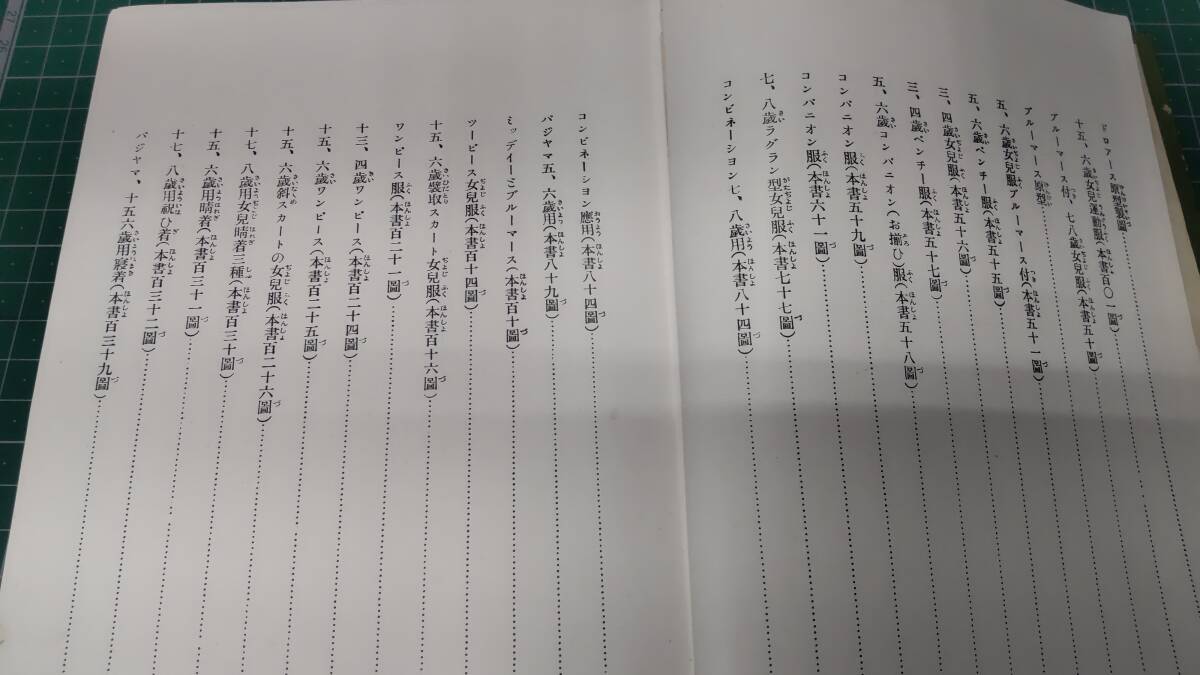 ドロアース原型製圖
十五、六歳女兒運動服(本書百〇一圖)
ブルーマース付、七八歳女兒服(本書五十圖)
ブルーマース原型
五、六歳女兒服ブルーマース付(本書五十一圖)
五、六歳ベンチー服(本書五十五圖)
三、四歳女兒服(本書五十六圖)
三、四歳ベンチー服(本書五十七圖)
五、六歳コンパニオン(お揃ひ)服(本書五十八圖)
コンパニオン服(本書五十九圖)
コンパニオン服(本書六十一圖)
七、八歳ラグラン型女兒服(本書七十七圖)
コンビネーション七、八歳用(本書八十四圖)
コンビネーション應用(本書八十四圖)
パジヤマ五、六歳用(本書八十九圖)
ミッデイーとブルーマース(本書百十圖)
ツーピース女兒服(本書百十四圖)
十五、六歳襞取スカート女兒服(本書百十六圖)
ワンピース服(本書百二十一圖)
十三、四歳ワンピース(本書百二十四圖)
十五、六歳ワンピース(本書百二十五圖)
十五、六歳斜スカートの女兒服(本書百二十六圖)
十七、八歳用女兒晴着三種(本書百三十圖)
十五、六歳用晴着(本書百三十一圖)
十七、八歳用祝ひ着(本書百三十二圖)
パジヤマ、十五六歳用寢着(本書百三十九圖)